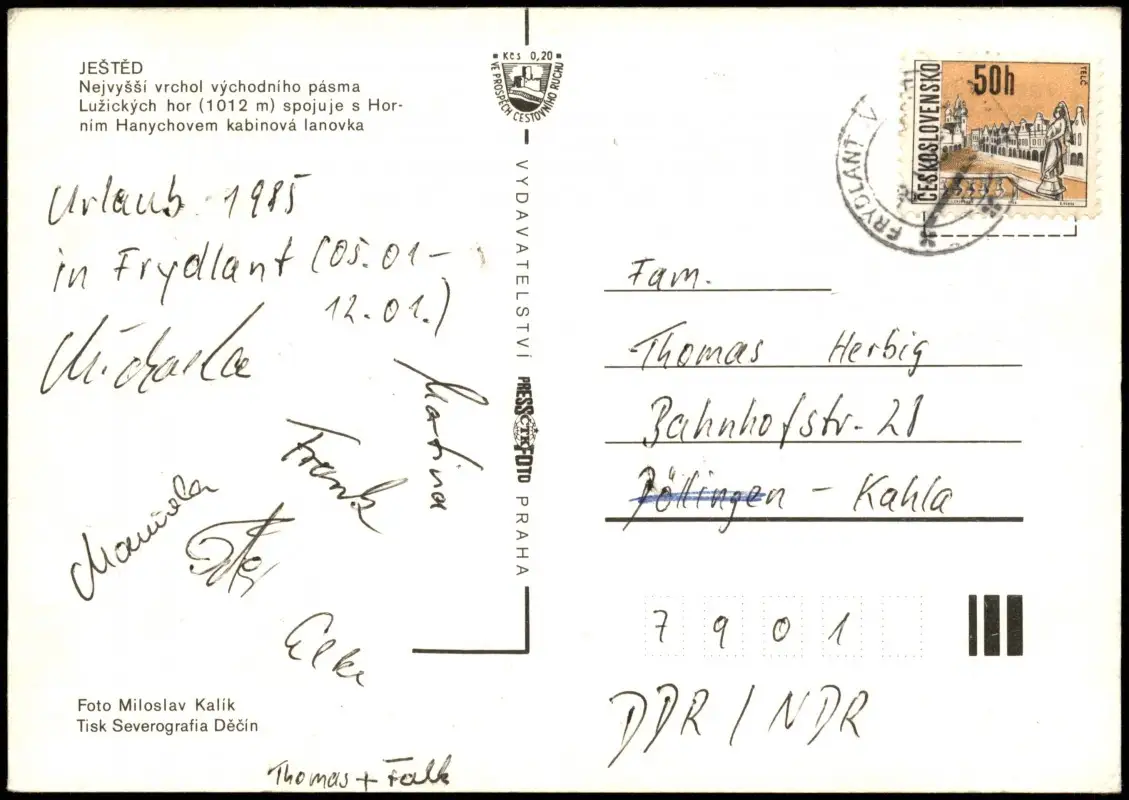 JEŠTĚD
Nejvyšší vrchol východního pásma
Lužických hor (1012 m) spojuje s Hor-
ním Hanychovem kabinová lanovka
Urlaub 1985
in Frydlant (05.01-
12.01.)
Michaela
Martina
Frank
Manuela
Elke
Foto Miloslav Kalík
Tisk Severografia Děčín
Thomas + Falk
Kčs 0,20
VE PROSPĚCH CESTOVNÍHO RUCHU
VYDAVATELSTVÍ PRESSFOTO ČTK PRAHA
50h
TELČ
ČESKOSLOVENSKO
FRYDLANT V
Fam.
Thomas Herbig
Bahnhofstr. 28
Döllingen - Kahla
7901
DDR / NDR